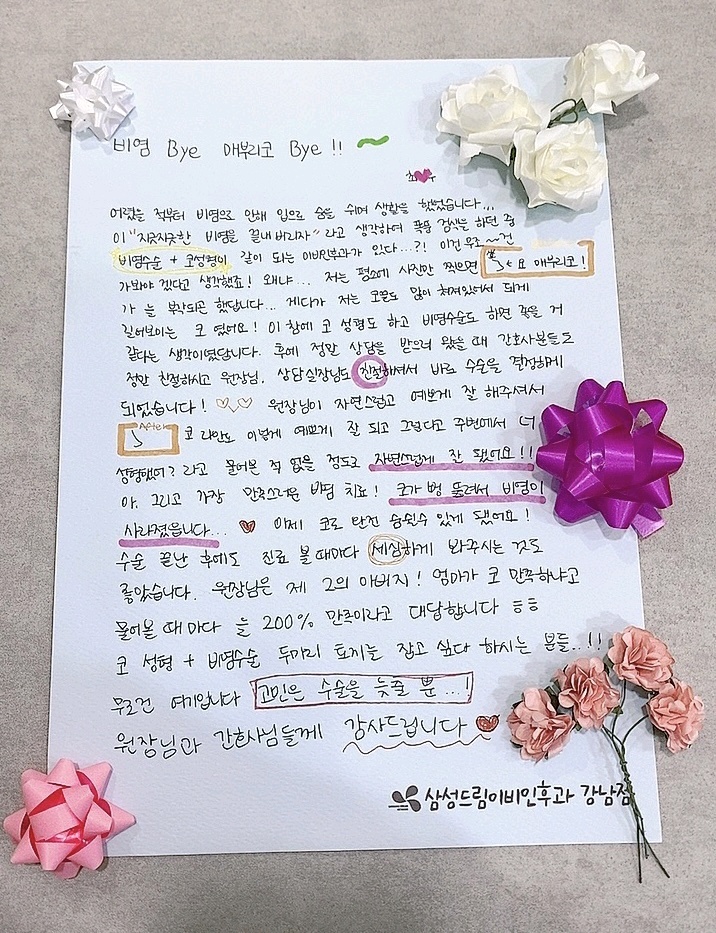 비염 Bye 매부리코 Bye !!
최♥우
어렸을 적부터 비염으로 인해 입으로 숨을 쉬며 생활을 했었습니다...
이 "지긋지긋한 비염을 끝내버리자" 라고 생각하여 폭풍 검색을 하던 중
비염수술 + 코성형이 같이 되는 이비인후과가 있다...?! 이건 무조~~건
가봐야 겠다고 생각했죠! 왜냐... 저는 평소에 사진만 찍으면 요 매부리코!
가 늘 부각되곤 했답니다... 게다가 저는 코끝도 많이 쳐져있어서 되게
길어보이는 코 였어요! 이 참에 코 성형도 하고 비염수술도 하면 좋을 거
같다는 생각이였답니다. 후에 정안 상담을 받으러 왔을 때 간호사분들도
정말 친절하시고 원장님, 상담실장님도 친절하셔서 바로 수술을 결정하게
되었습니다! ♡♡ 원장님이 자연스럽고 예쁘게 잘 해주셔서
After 코 라인도 이렇게 예쁘게 잘 되고 그렇다고 주변에서 너
성형했어? 라고 물어본 적 없을 정도로 자연스럽게 잘 됐어요!!
아, 그리고 가장 만족스러운 비염 치료! 코가 뻥 뚫려서 비염이
사라졌습니다... ♥ 이제 코로 완전 숨쉴수 있게 됐어요!
수술 끝난 후에도 진료 볼 때마다 세심하게 봐주시는 것도
좋았습니다. 원장님은 제 2의 아버지! 엄마가 코 만족하냐고
물어볼 때 마다 늘 200% 만족이라고 대답합니다 ㅎㅎ
코 성형 + 비염수술 두마리 토끼를 잡고 싶다 하시는 분들..!!
무조건 여기입니다 고민은 수술을 늦출 뿐...!
원장님과 간호사님들께 감사드립니다 ♥
삼성드림이비인후과 강남점